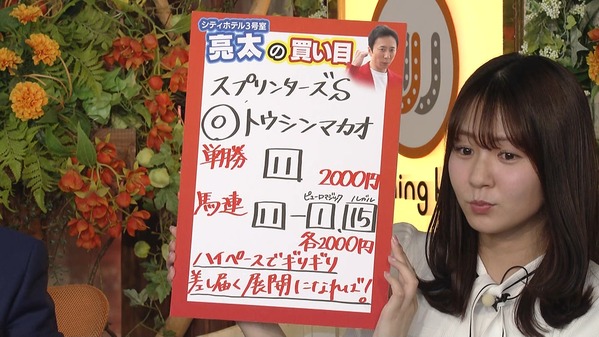 シティホテル3号室
亮太の買い目
スプリンターズS
◎トウシンマカオ
単勝 11 2000円
ピューロマジック ルガル
馬連 11-1,15
各2000円
ハイペースでギリギリ
差し届く展開になれば!
ning